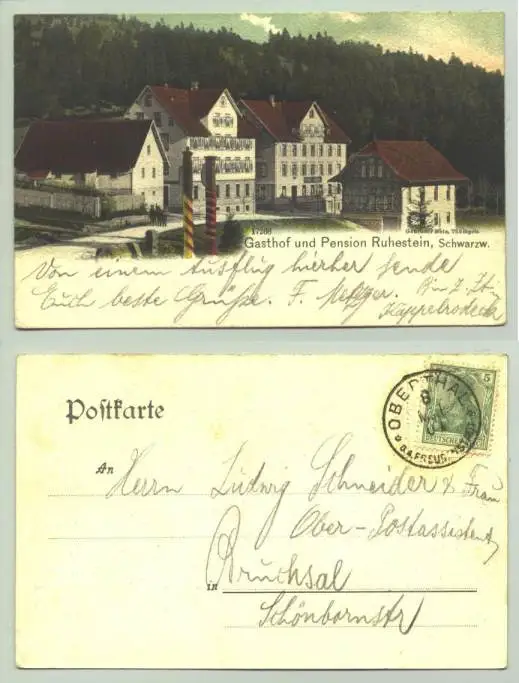 17268
Gebrüder Metz, Tübingen.
Gasthof und Pension Ruhestein, Schwarzw.
Von einem Ausflug hierher sende
Euch beste Grüße. F. Metzger. Bin z. Zt.
Kappelrodeck
Postkarte
5
OBERTHAL
8
O.A. FREUDENSTADT
DEUTSCHES
An Herrn Ludwig Schneider & Frau
Ober-Postassistent
in Bruchsal
Schönbornstr